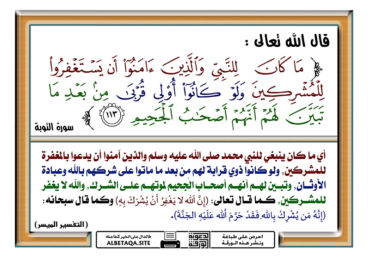 قال الله تعالى :
﴿ مَا كَانَ لِلنَّبِيِّ وَالَّذِينَ ءَامَنُوٓا۟ أَن يَسْتَغْفِرُوا۟
لِلْمُشْرِكِينَ وَلَوْ كَانُوٓا۟ أُو۟لِى قُرْبَىٰ مِنۢ بَعْدِ مَا
تَبَيَّنَ لَهُمْ أَنَّهُمْ أَصْحَٰبُ ٱلْجَحِيمِ ﴿١١٣﴾
سورة التوبة
أي ما كان ينبغي للنبي محمد صلى الله عليه وسلم والذين آمنوا أن يدعوا بالمغفرة
للمشركين، ولو كانوا ذوي قرابة لهم من بعد ما ماتوا على شركهم بالله وعبادة
الأوثان، وتبين لهم أنهم أصحاب الجحيم لموتهم على الشرك، والله لا يغفر
للمشركين، كما قال تعالى: (إِنَّ اللهَ لا يَغْفِرُ أَنْ يُشْرَكَ بِهِ) وكما قال سبحانه:
(إِنَّهُ مَن يُشْرِكْ بِاللهِ فَقَدْ حَرَّمَ اللهُ عَلَيْهِ الجَنَّةَ).
(التفسير الميسر)
احرص على طباعة
ونشر هذه الورقة
ALBETAQA.SITE